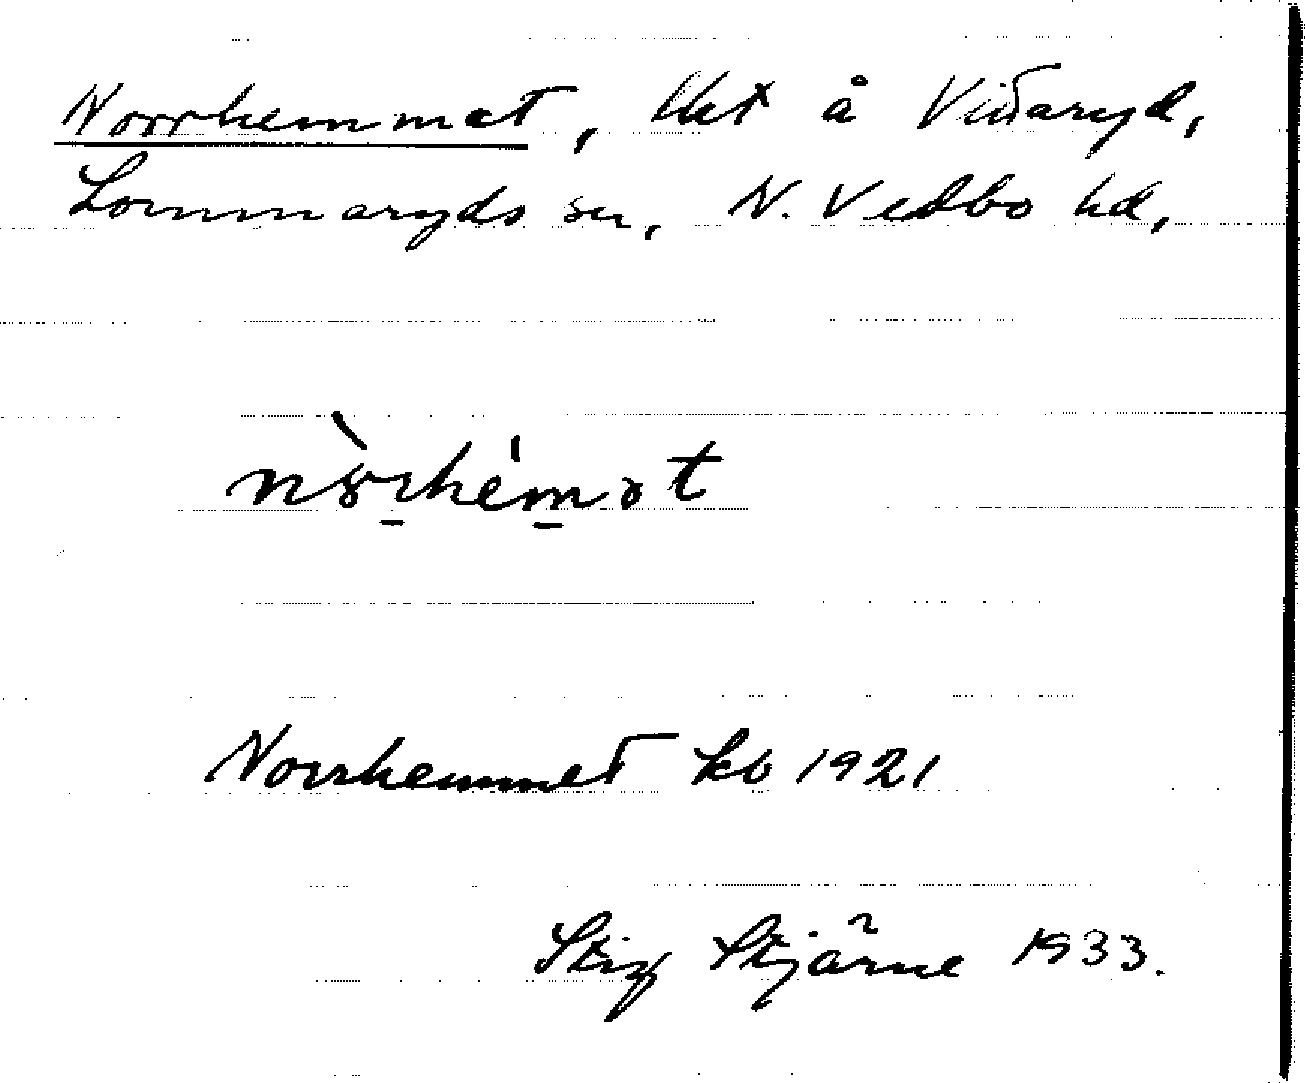 Norrhemmet, lht å Vidaryd,
Lommaryds sn, N. Vedbo hd,
nòrhémət
Norrhemmet kb 1921
Stig Stjärne 1933.